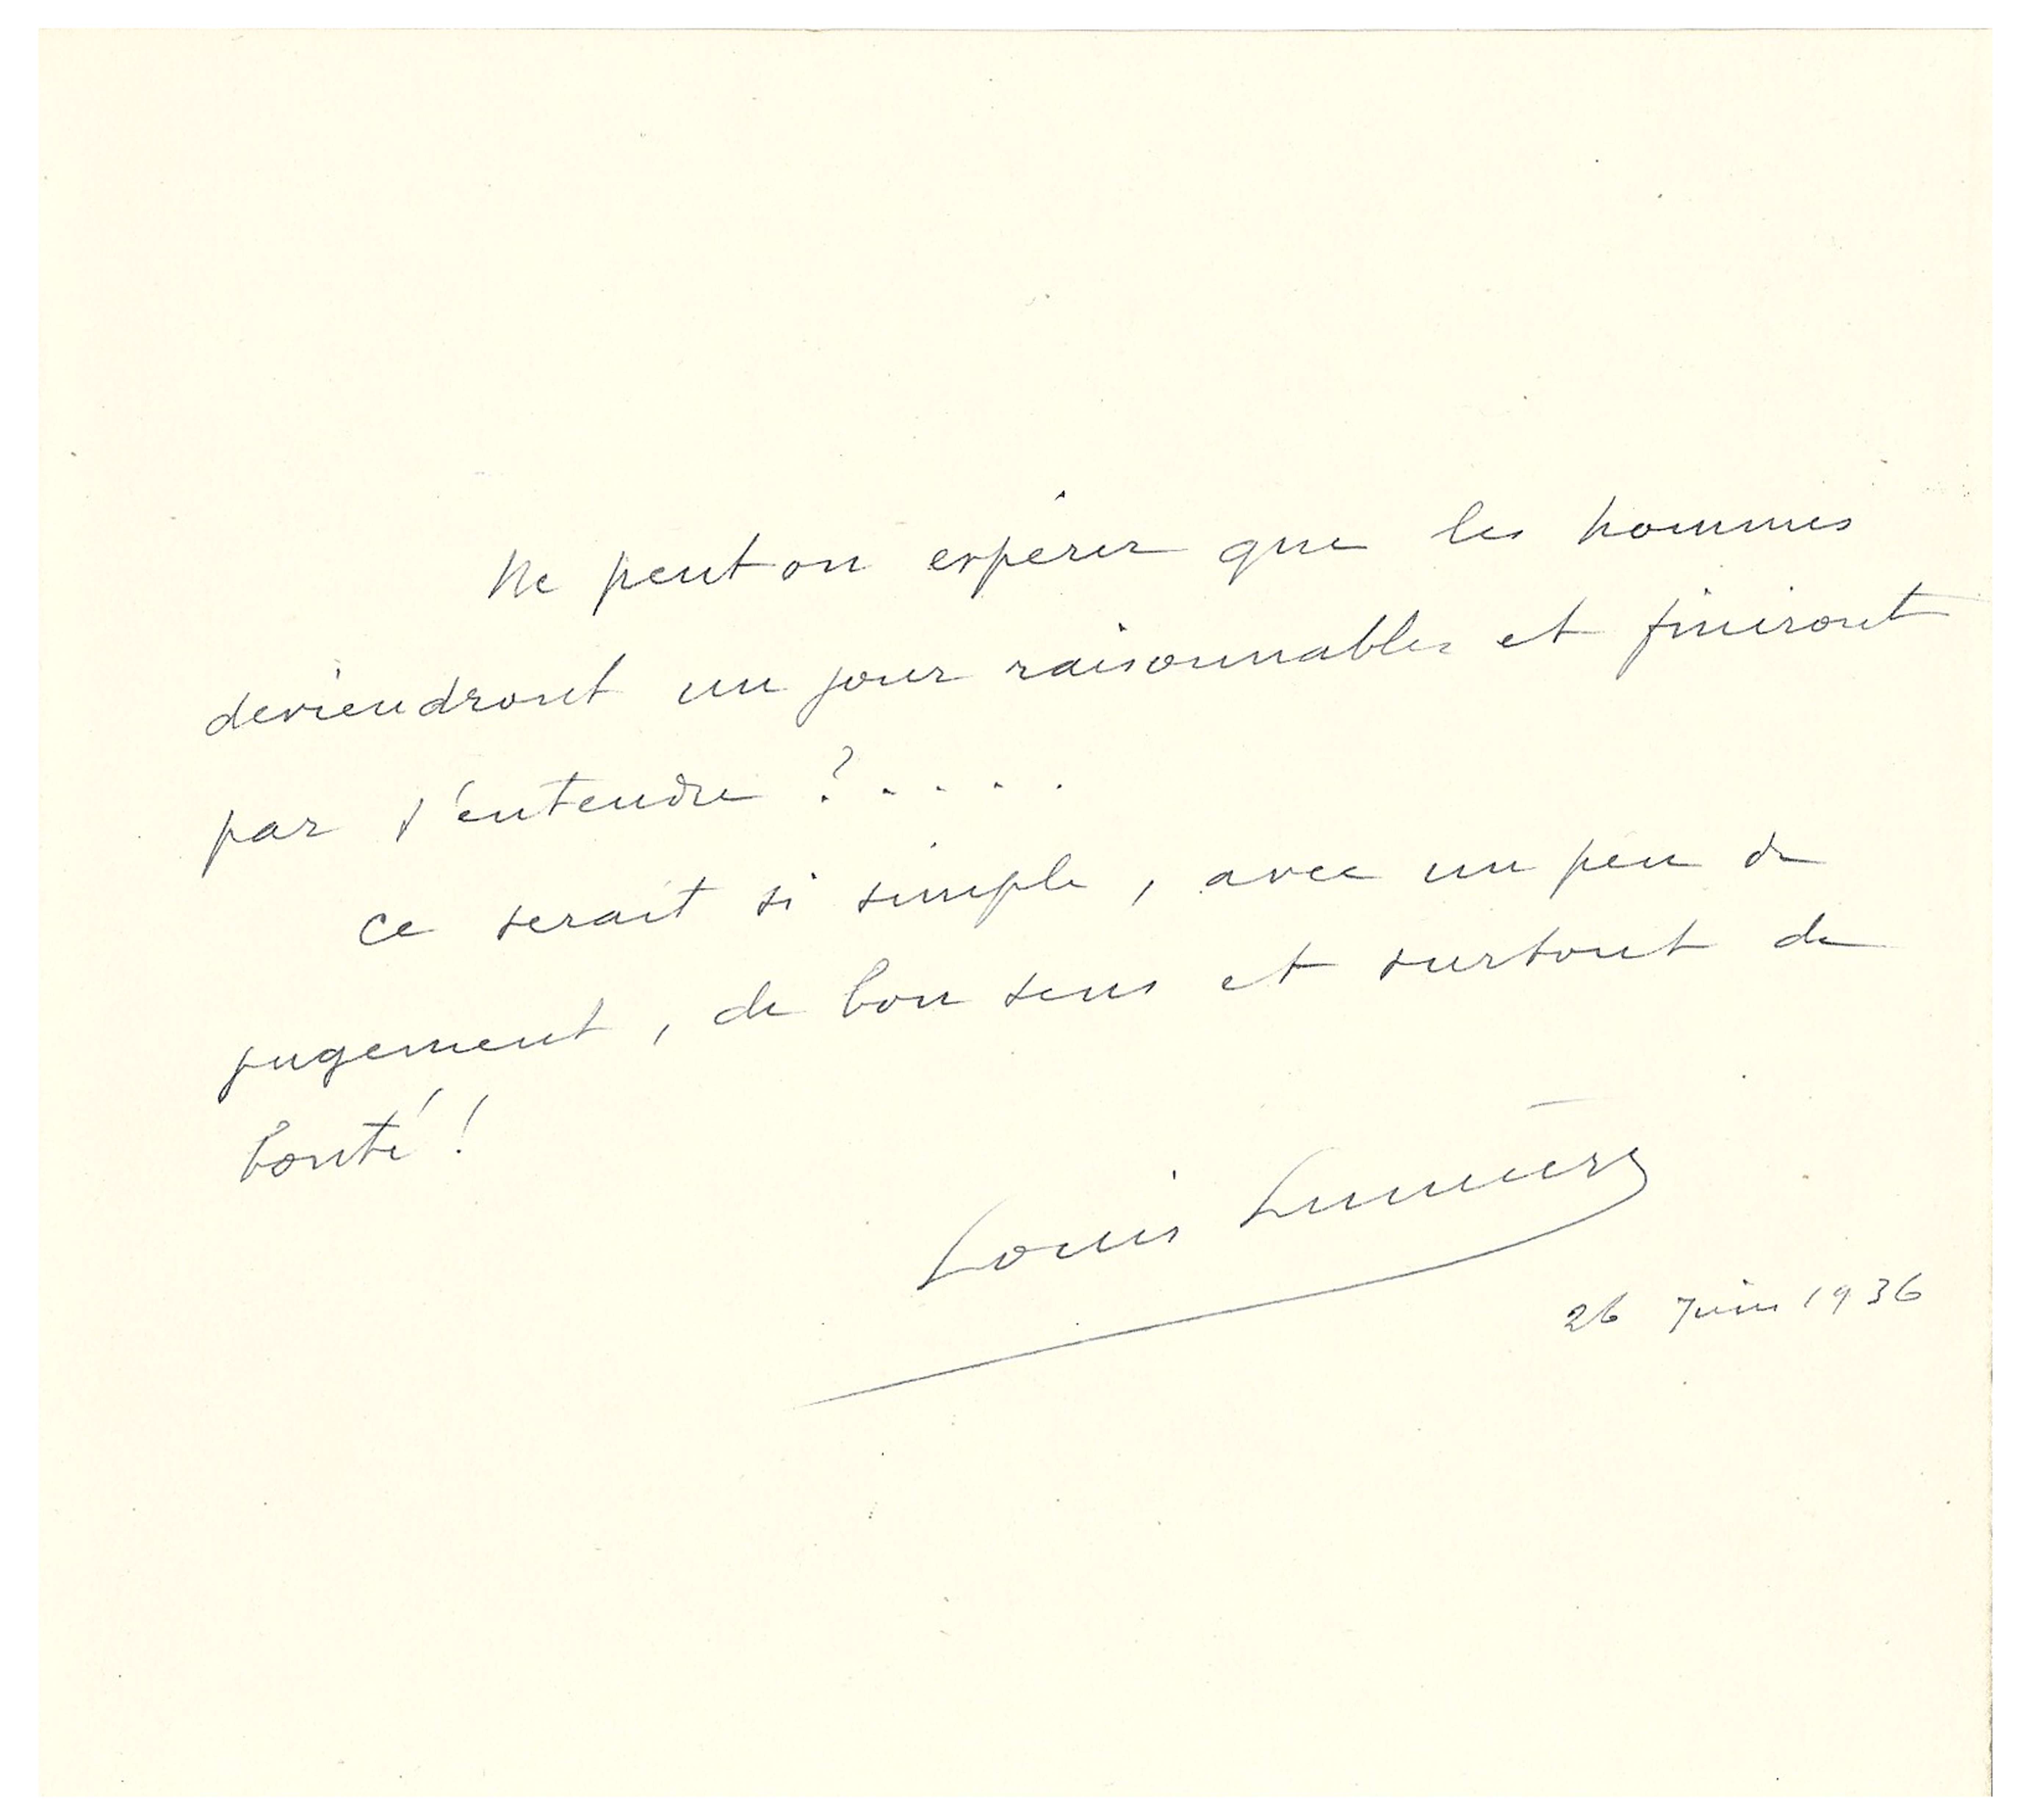 Ne peut on espérer que les hommes
deviendront un jour raisonnables et finiront
par s'entendre ?....
Ce serait si simple, avec un peu de
jugement, de bon sens et surtout de
bonté !
Louis Lumière
26 Juin 1936